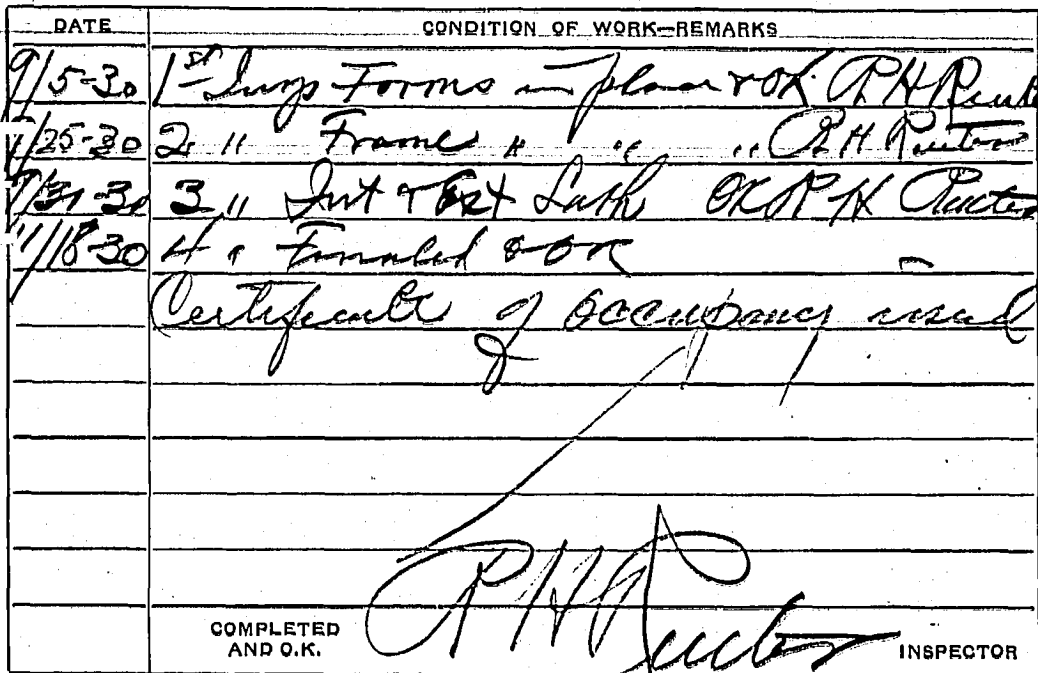 DATE CONDITION OF WORK—REMARKS
9/5-30 1st Insp Forms in place & OK R H Reuter
/25-30 2 " Frame " " " R H Reuter
3 " Int & Ext Lath OK R H Reuter
11/18-30 4 " Finaled & OK
Certificate of Occupancy issued
R H Reuter
COMPLETED AND O.K. INSPECTOR